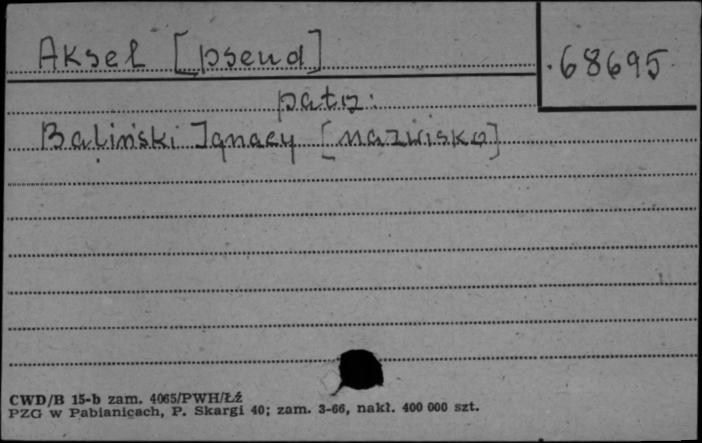 Aksel [pseud]
68695
patrz:
Baliński Ignacy [nazwisko]
CWD/B 15-b zam. 4065/PWH/Łź
PZG w Pabianicach, P. Skargi 40; zam. 3-66, nakł. 400 000 szt.